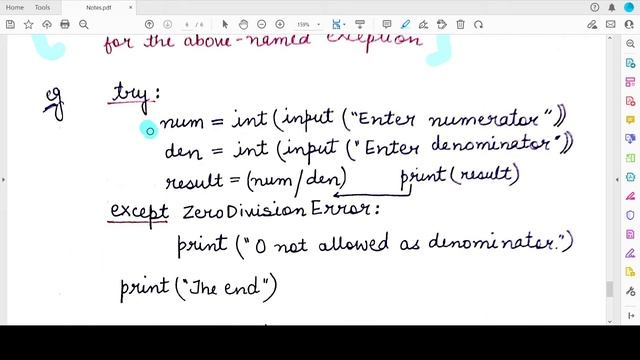 Home
Tools
Notes.pdf
×
4 / 6
159%
for the above-named exception
eg try:
num = int(input("Enter numerator"))
den = int(input("Enter denominator"))
result = (num/den) print(result)
except ZeroDivisionError:
print("0 not allowed as denominator.")
print("The end")